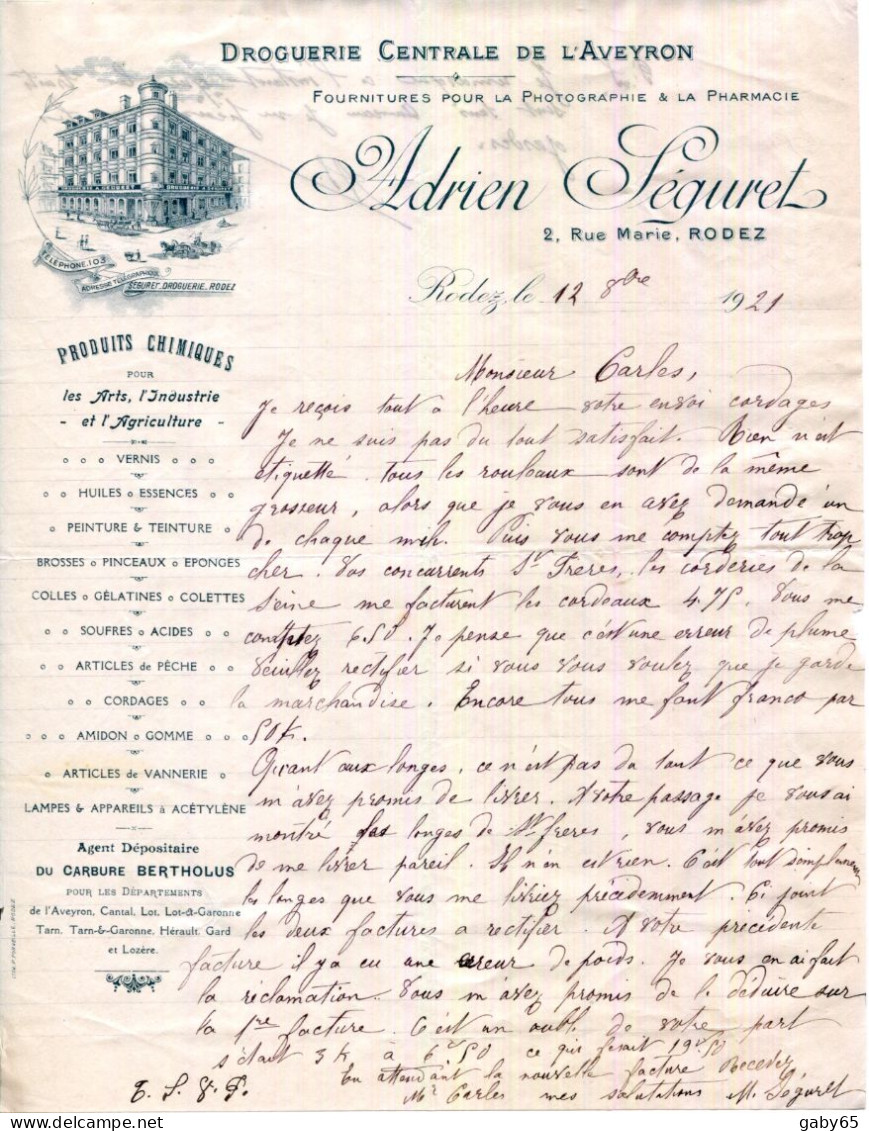 DROGUERIE CENTRALE DE L'AVEYRON
FOURNITURES POUR LA PHOTOGRAPHIE & LA PHARMACIE
Adrien Séguret
2, RUE MARIE, RODEZ
TÉLÉPHONE.103
ADRESSE TÉLÉGRAPHIQUE
SÉGURET_DROGUERIE_RODEZ
Rodez, le 12 8bre 1921
PRODUITS CHIMIQUES
POUR
les Arts, l'Industrie
- et l'Agriculture -
VERNIS
HUILES o ESSENCES
PEINTURE & TEINTURE
BROSSES o PINCEAUX o EPONGES
COLLES o GÉLATINES o COLETTES
SOUFRES o ACIDES
ARTICLES de PÊCHE
CORDAGES
AMIDON o GOMME
ARTICLES de VANNERIE
LAMPES & APPAREILS à ACÉTYLÈNE
Agent Dépositaire
DU CARBURE BERTHOLUS
POUR LES DÉPARTEMENTS
de l'Aveyron, Cantal, Lot, Lot-&-Garonne
Tarn, Tarn-&-Garonne, Hérault, Gard
et Lozère.
Monsieur Carles,
Je reçois tout à l'heure votre envoi cordages
Je ne suis pas du tout satisfait. Rien n'est
etiquetté tous les rouleaux sont de la même
grosseur, alors que je vous en avez demandé un
de chaque mih. Puis vous me comptez tout trop
cher. Vos concurrents St Freres, les corderies de la
Seine me facturent les cordeaux 4.75. Vous me
comptez 6.50. Je pense que c'est une erreur de plume
veuillez rectifier si vous vous voulez que je garde
la marchandise. Encore tous me font franco par
50k.
Quant aux longes, ce n'est pas du tout ce que vous
m'avez promis de livrer. A votre passage je vous ai
montré les longes de St freres, vous m'avez promis
de me livrer pareil. Il n'en est rien. C'est tout simplement
les longes que vous me livriez précédemment. Ci joint
les deux factures a rectifier. A votre précédente
facture il y a eu une erreur de poids. Je vous en ai fait
la réclamation. Vous m'avez promis de le déduire sur
la 1re facture. C'est un oubli de votre part
s'étant 3k à 6.50 ce qui ferait 19.50
En attendant la nouvelle facture Recevez
T. S. V. P. Mr Carles mes salutations M. Séguret
gaby65